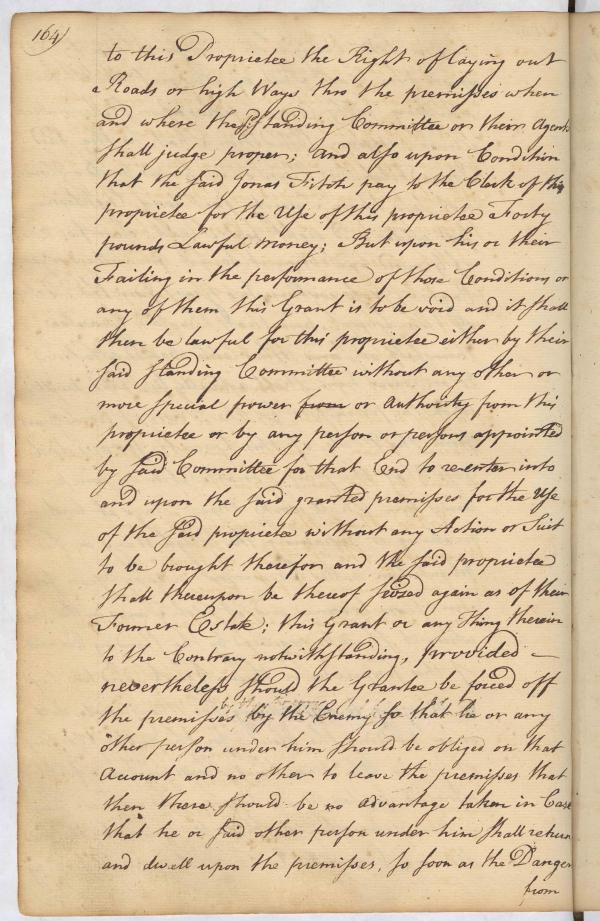 164
to this Proprietee the Right of laying out
Roads or high Ways thro the premisses when
and where the Standing Committee or their Agents
Shall judge proper; And also upon Condition
that the said Jonas Fitch pay to the Clerk of this
proprietee for the Use of this proprietee Forty
pounds Lawful Money; But upon his or their
Failing in the performance of those Conditions or
any of them this Grant is to be void and it shall
then be lawful for this proprietee either by their
said Standing Committee without any other or
more special power from or Authority from this
proprietee or by any person or persons appointed
by said Committee for that End to re-enter into
and upon the said granted premisses for the Use
of the said proprietee without any Action or Suit
to be brought therefor and the said proprietee
shall thereupon be thereof seized again as of their
Former Estate; this Grant or any Thing therein
to the Contrary notwithstanding, provided
nevertheless should the Grantee be forced off
the premisses by the Enemy so that he or any
other person under him should be obliged on that
Account and no other to leave the premisses that
then there should be no advantage taken in Case
that he or said other person under him shall return
and dwell upon the premisses, so soon as the Danger
from